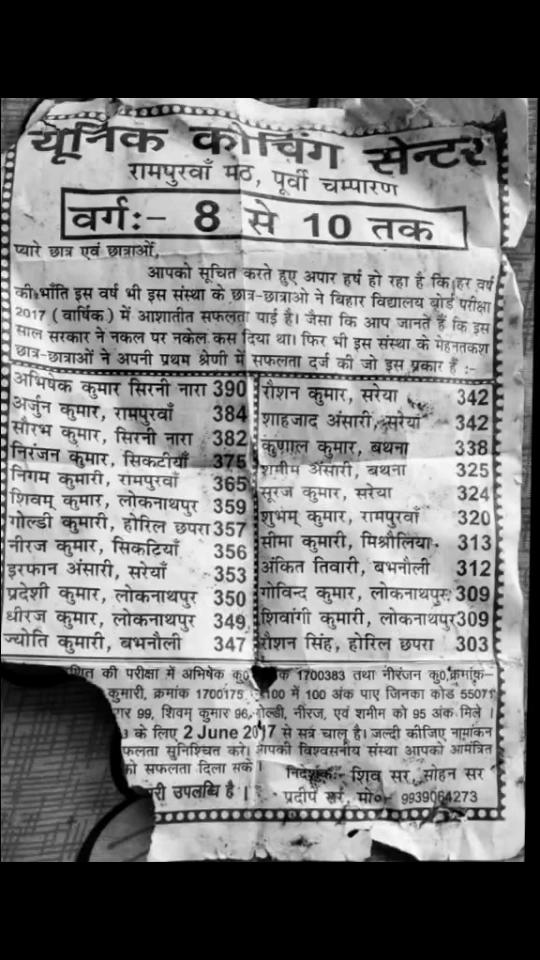 यूनिक कोचिंग सेन्टर
रामपुरवाँ मठ, पूर्वी चम्पारण
वर्गः- 8 से 10 तक
प्यारे छात्र एवं छात्राओं,
आपको सूचित करते हुए अपार हर्ष हो रहा है कि हर वर्ष
की भाँति इस वर्ष भी इस संस्था के छात्र-छात्राओ ने बिहार विद्यालय बोर्ड परीक्षा
2017 (वार्षिक) में आशातीत सफलता पाई है। जैसा कि आप जानते हैं कि इस
साल सरकार ने नकल पर नकेल कस दिया था। फिर भी इस संस्था के मेहनतकश
छात्र-छात्राओं ने अपनी प्रथम श्रेणी में सफलता दर्ज की जो इस प्रकार हैं :-
अभिषेक कुमार सिरनी नारा 390
अर्जुन कुमार, रामपुरवाँ 384
सौरभ कुमार, सिरनी नारा 382
निरंजन कुमार, सिकटीयाँ 375
निगम कुमारी, रामपुरवाँ 365
शिवम् कुमार, लोकनाथपुर 359
गोल्डी कुमारी, होरिल छपरा 357
नीरज कुमार, सिकटियाँ 356
इरफान अंसारी, सरेयाँ 353
प्रदेशी कुमार, लोकनाथपुर 350
धीरज कुमार, लोकनाथपुर 349
ज्योति कुमारी, बभनौली 347
रौशन कुमार, सरेया 342
शाहजाद अंसारी, सरेयाँ 342
कुणाल कुमार, बथना 338
शमीम अंसारी, बथना 325
सूरज कुमार, सरेया 324
शुभम् कुमार, रामपुरवाँ 320
सीमा कुमारी, मिश्रौलिया 313
अंकित तिवारी, बभनौली 312
गोविन्द कुमार, लोकनाथपुर 309
शिवांगी कुमारी, लोकनाथपुर 309
रौशन सिंह, होरिल छपरा 303
की परीक्षा में अभिषेक कु० 1700383 तथा नीरंजन कु० क्रमांक-
कुमारी, क्रमांक 1700175 100 में 100 अंक पाए जिनका कोड 55071
99, शिवम् कुमार 96, गोल्डी, नीरज, एवं शमीम को 95 अंक मिले ।
के लिए 2 June 2017 से सत्र चालू है। जल्दी कीजिए नामांकन
सुनिश्चित करे। आपकी विश्वसनीय संस्था आपको आमंत्रित
सफलता दिला सके।
निदेशकः- शिव सर, सोहन सर
उपलब्धि है ।
प्रदीप सर, मो०- 9939064273